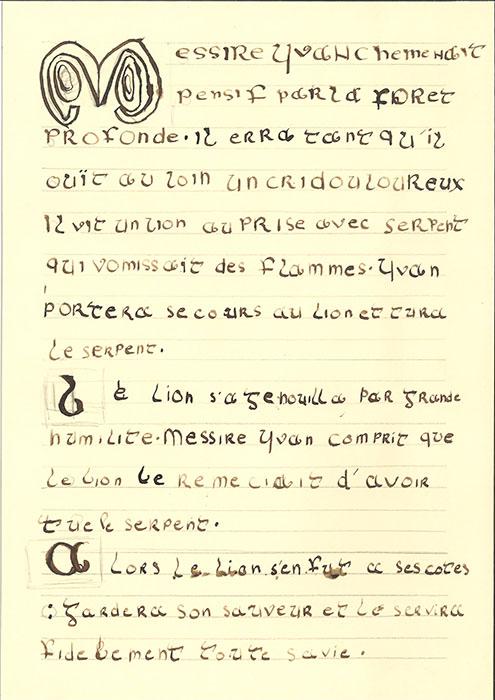 Messire Yvan chemenait
pensif par la foret
profonde. Il erra tant qu'il
ouït au loin un cri douloureux
Il vit un lion au prise avec serpent
qui vomissait des flammes. Yvan
portera secours au lion et tura
le serpent.
Le lion s'agenouilla par grande
humilite. Messire Yvan comprit que
le lion le remeciait d'avoir
tue le serpent.
Alors le lion s'en fut a ses cotes
: gardera son sauveur et le servira
fidelement toute sa vie.